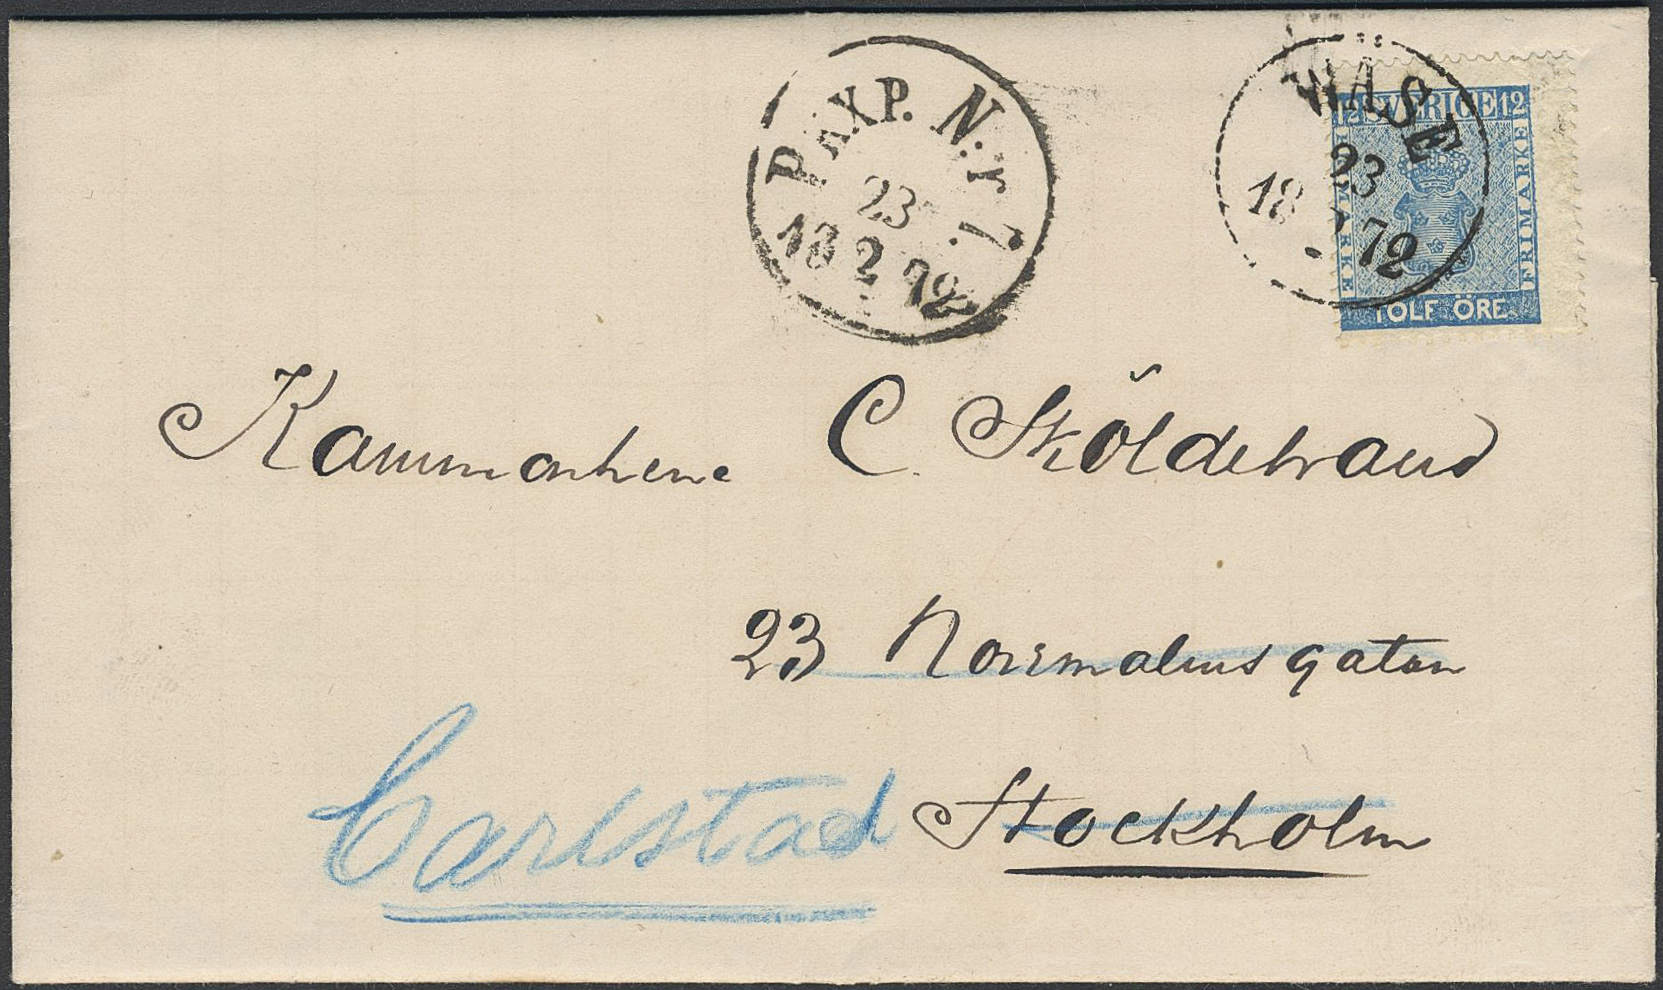 PKXP. N:r 7.
23
18 2 72
WÄSE
23
18 2 72
12 SVERIGE 12
FRIMÄRKE
FRIMÄRKE
TOLF ÖRE.
C. Sköldebrand
23 Norrmalmsgatan
Carlstad Stockholm